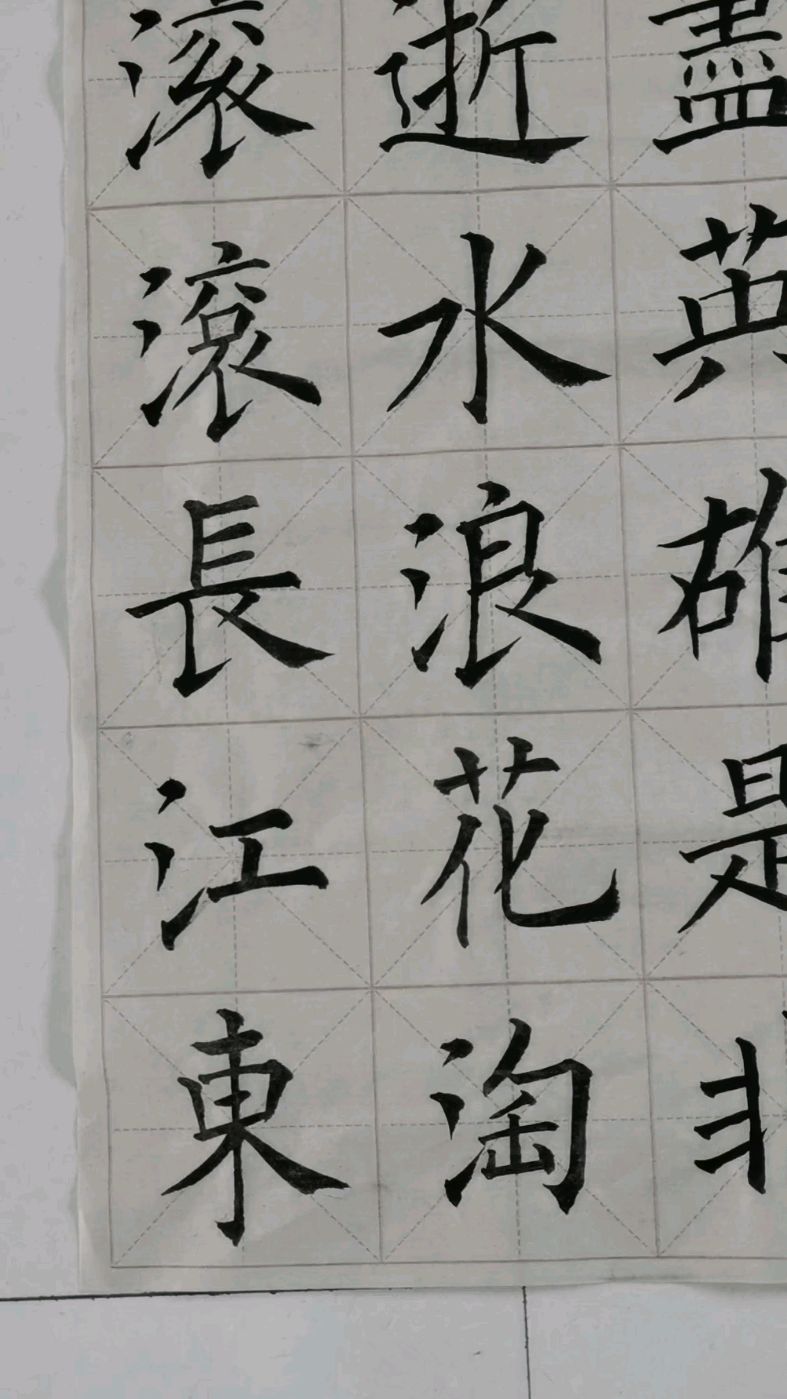 滚滾長江東
逝水浪花淘
盡英雄是非